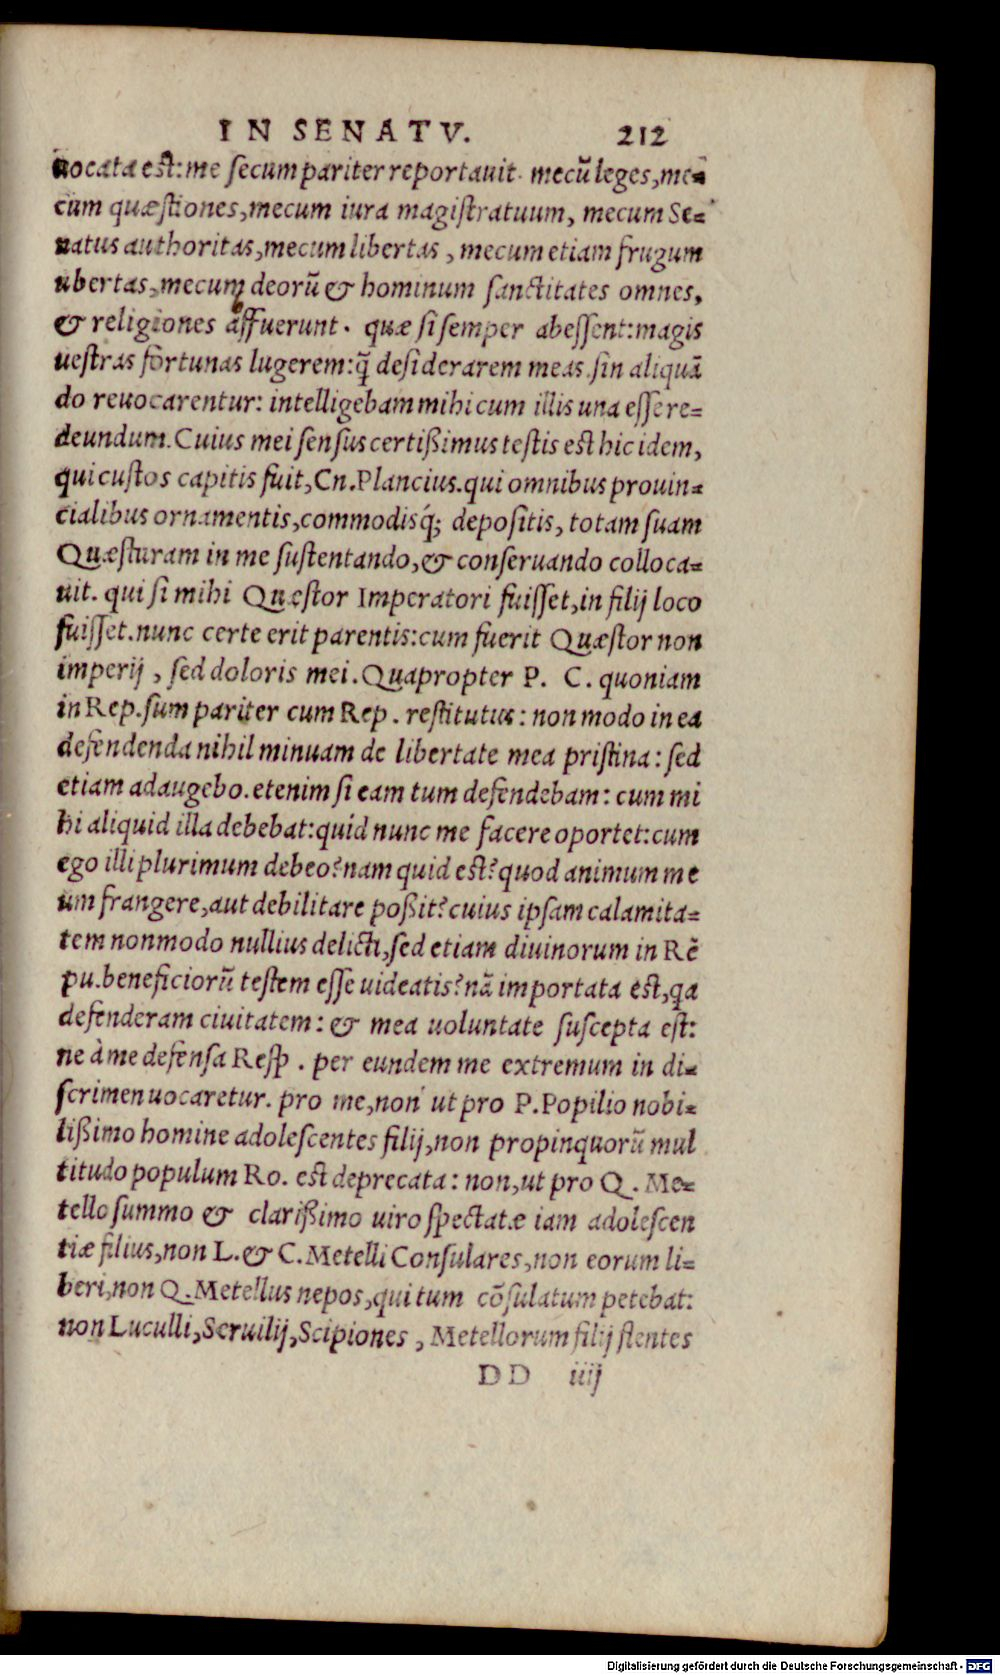 IN SENATV. 212
uocata est: me secum pariter reportauit. mecũ leges, me-
cum quæstiones, mecum iura magistratuum, mecum Se-
natus authoritas, mecum libertas, mecum etiam frugum
ubertas, mecum deorũ & hominum sanctitates omnes,
& religiones affuerunt. quæ si semper abessent: magis
uestras fortunas lugerem: q̃ desiderarem meas. sin aliquã
do reuocarentur: intelligebam mihi cum illis una esse re-
deundum. Cuius mei sensus certißimus testis est hic idem,
qui custos capitis fuit, Cn. Plancius. qui omnibus prouin-
cialibus ornamentis, commodisq́; depositis, totam suam
Quæsturam in me sustentando, & conseruando colloca-
uit. qui si mihi Quæstor Imperatori fuisset, in filij loco
fuisset. nunc certe erit parentis: cum fuerit Quæstor non
imperij, sed doloris mei. Quapropter P. C. quoniam
in Rep. sum pariter cum Rep. restitutus: non modo in ea
defendenda nihil minuam de libertate mea pristina: sed
etiam adaugebo. etenim si eam tum defendebam: cum mi
hi aliquid illa debebat: quid nunc me facere oportet: cum
ego illi plurimum debeo? nam quid est? quod animum me
um frangere, aut debilitare poßit? cuius ipsam calamita-
tem nonmodo nullius delicti, sed etiam diuinorum in Rẽ
pu. beneficiorũ testem esse uideatis? nã importata est, qa
defenderam ciuitatem: & mea uoluntate suscepta est:
ne à me defensa Resp. per eundem me extremum in di-
scrimen uocaretur. pro me, non ut pro P. Popilio nobi-
lißimo homine adolescentes filij, non propinquorũ mul
titudo populum Ro. est deprecata: non, ut pro Q. Me-
tello summo & clarißimo uiro spectatæ iam adolescen
tiæ filius, non L. & C. Metelli Consulares, non eorum li-
beri, non Q. Metellus nepos, qui tum cõsulatum petebat:
non Luculli, Seruilij, Scipiones, Metellorum filij flentes
DD iiij
Digitalisierung gefördert durch die Deutsche Forschungsgemeinschaft - DFG